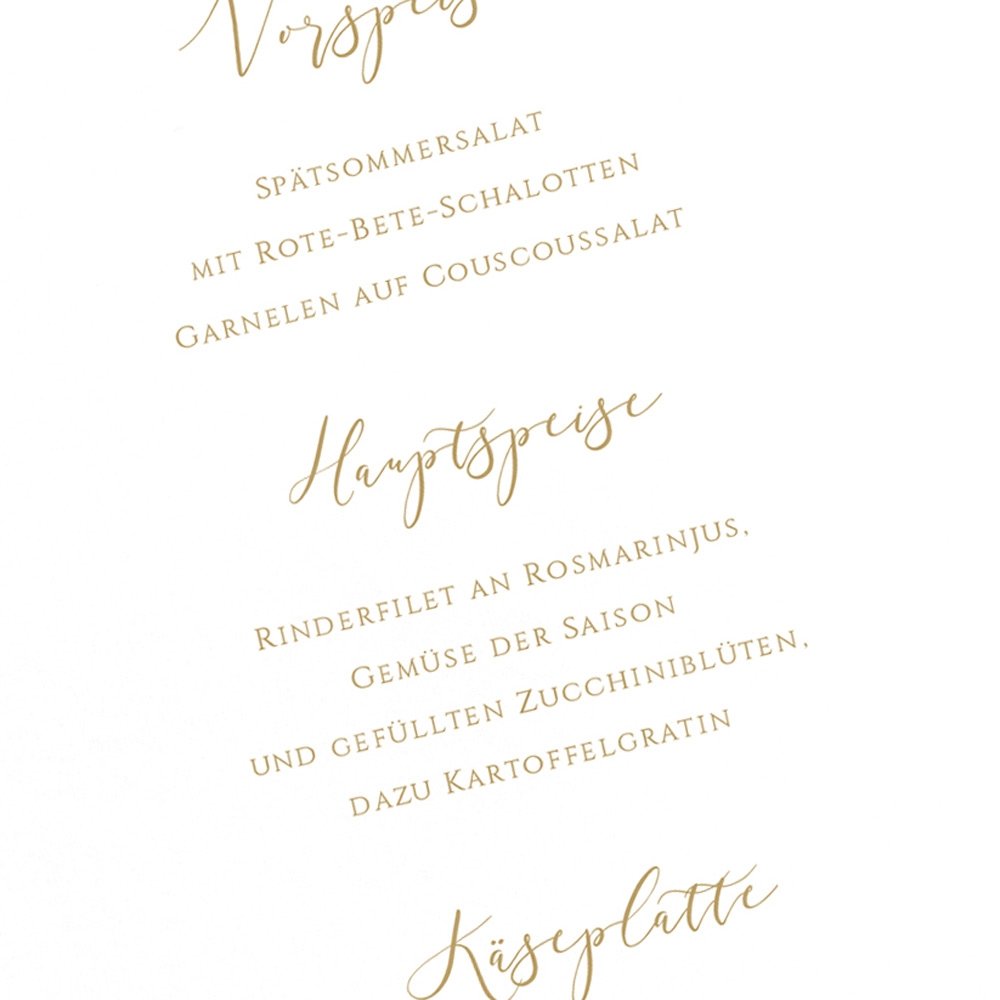 Vorspeis
Spätsommersalat
mit Rote-Bete-Schalotten
Garnelen auf Couscoussalat
Hauptspeise
Rinderfilet an Rosmarinjus,
Gemüse der Saison
und gefüllten Zucchiniblüten,
dazu Kartoffelgratin
Käseplatte